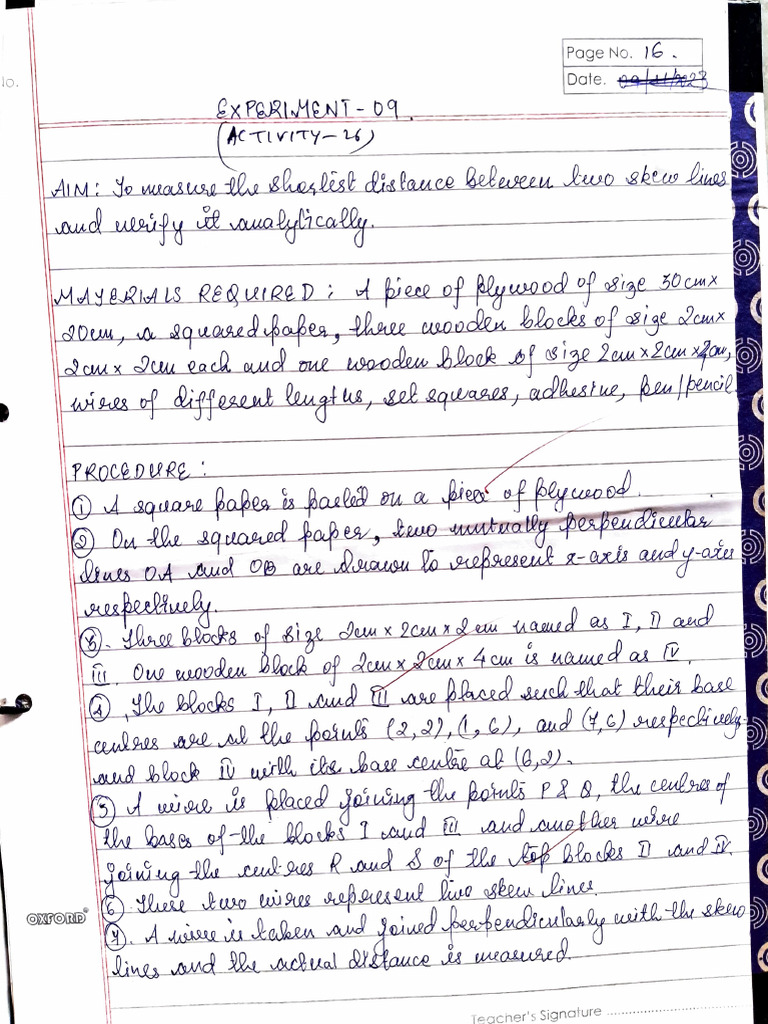 Page No. 16.
Date. 09/11/2023
lo.
EXPERIMENT-09.
(ACTIVITY-26)
AIM: To measure the shortest distance between two skew lines
and verify it analytically.
MATERIALS REQUIRED: A piece of plywood of size 30cm×
20cm, a squared paper, three wooden blocks of size 2cm×
2cm× 2cm each and one wooden block of size 2cm×2cm×4cm,
wires of different lengths, set squares, adhesive, pen/pencil.
PROCEDURE:
① A square paper is pasted on a piece of plywood.
② On the squared paper, two mutually perpendicular
lines OA and OB are drawn to represent x-axis and y-axis
respectively.
③. Three blocks of size 2cm×2cm×2cm named as I, II and
III. One wooden block of 2cm×2cm×4cm is named as IV.
④, The blocks I, II and III are placed such that their base
centres are at the points (2,2), (1,6), and (7,6) respectively
and block IV with its base centre at (6,2).
⑤ A wire is placed joining the points P & Q, the centres of
the bases of the blocks I and III and another wire
joining the centres R and S of the top blocks II and IV.
⑥ These two wires represent two skew lines.
⑦. A wire is taken and joined perpendicularly with the skew
lines and the actual distance is measured.
OXFORD®
Teacher's Signature ..............................